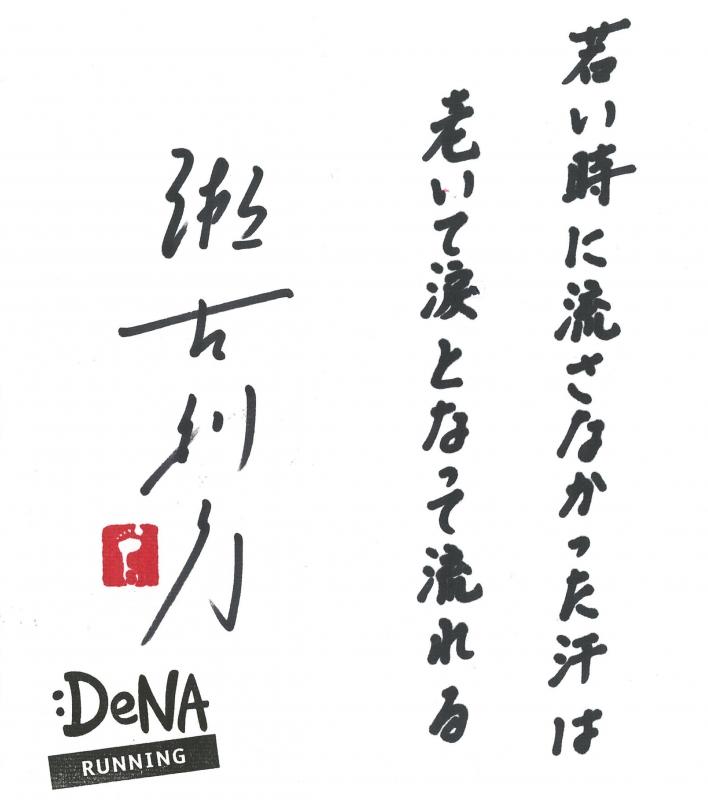 若い時に流さなかった汗は
老いて涙となって流れる
瀬古利彦
:DeNA
RUNNING